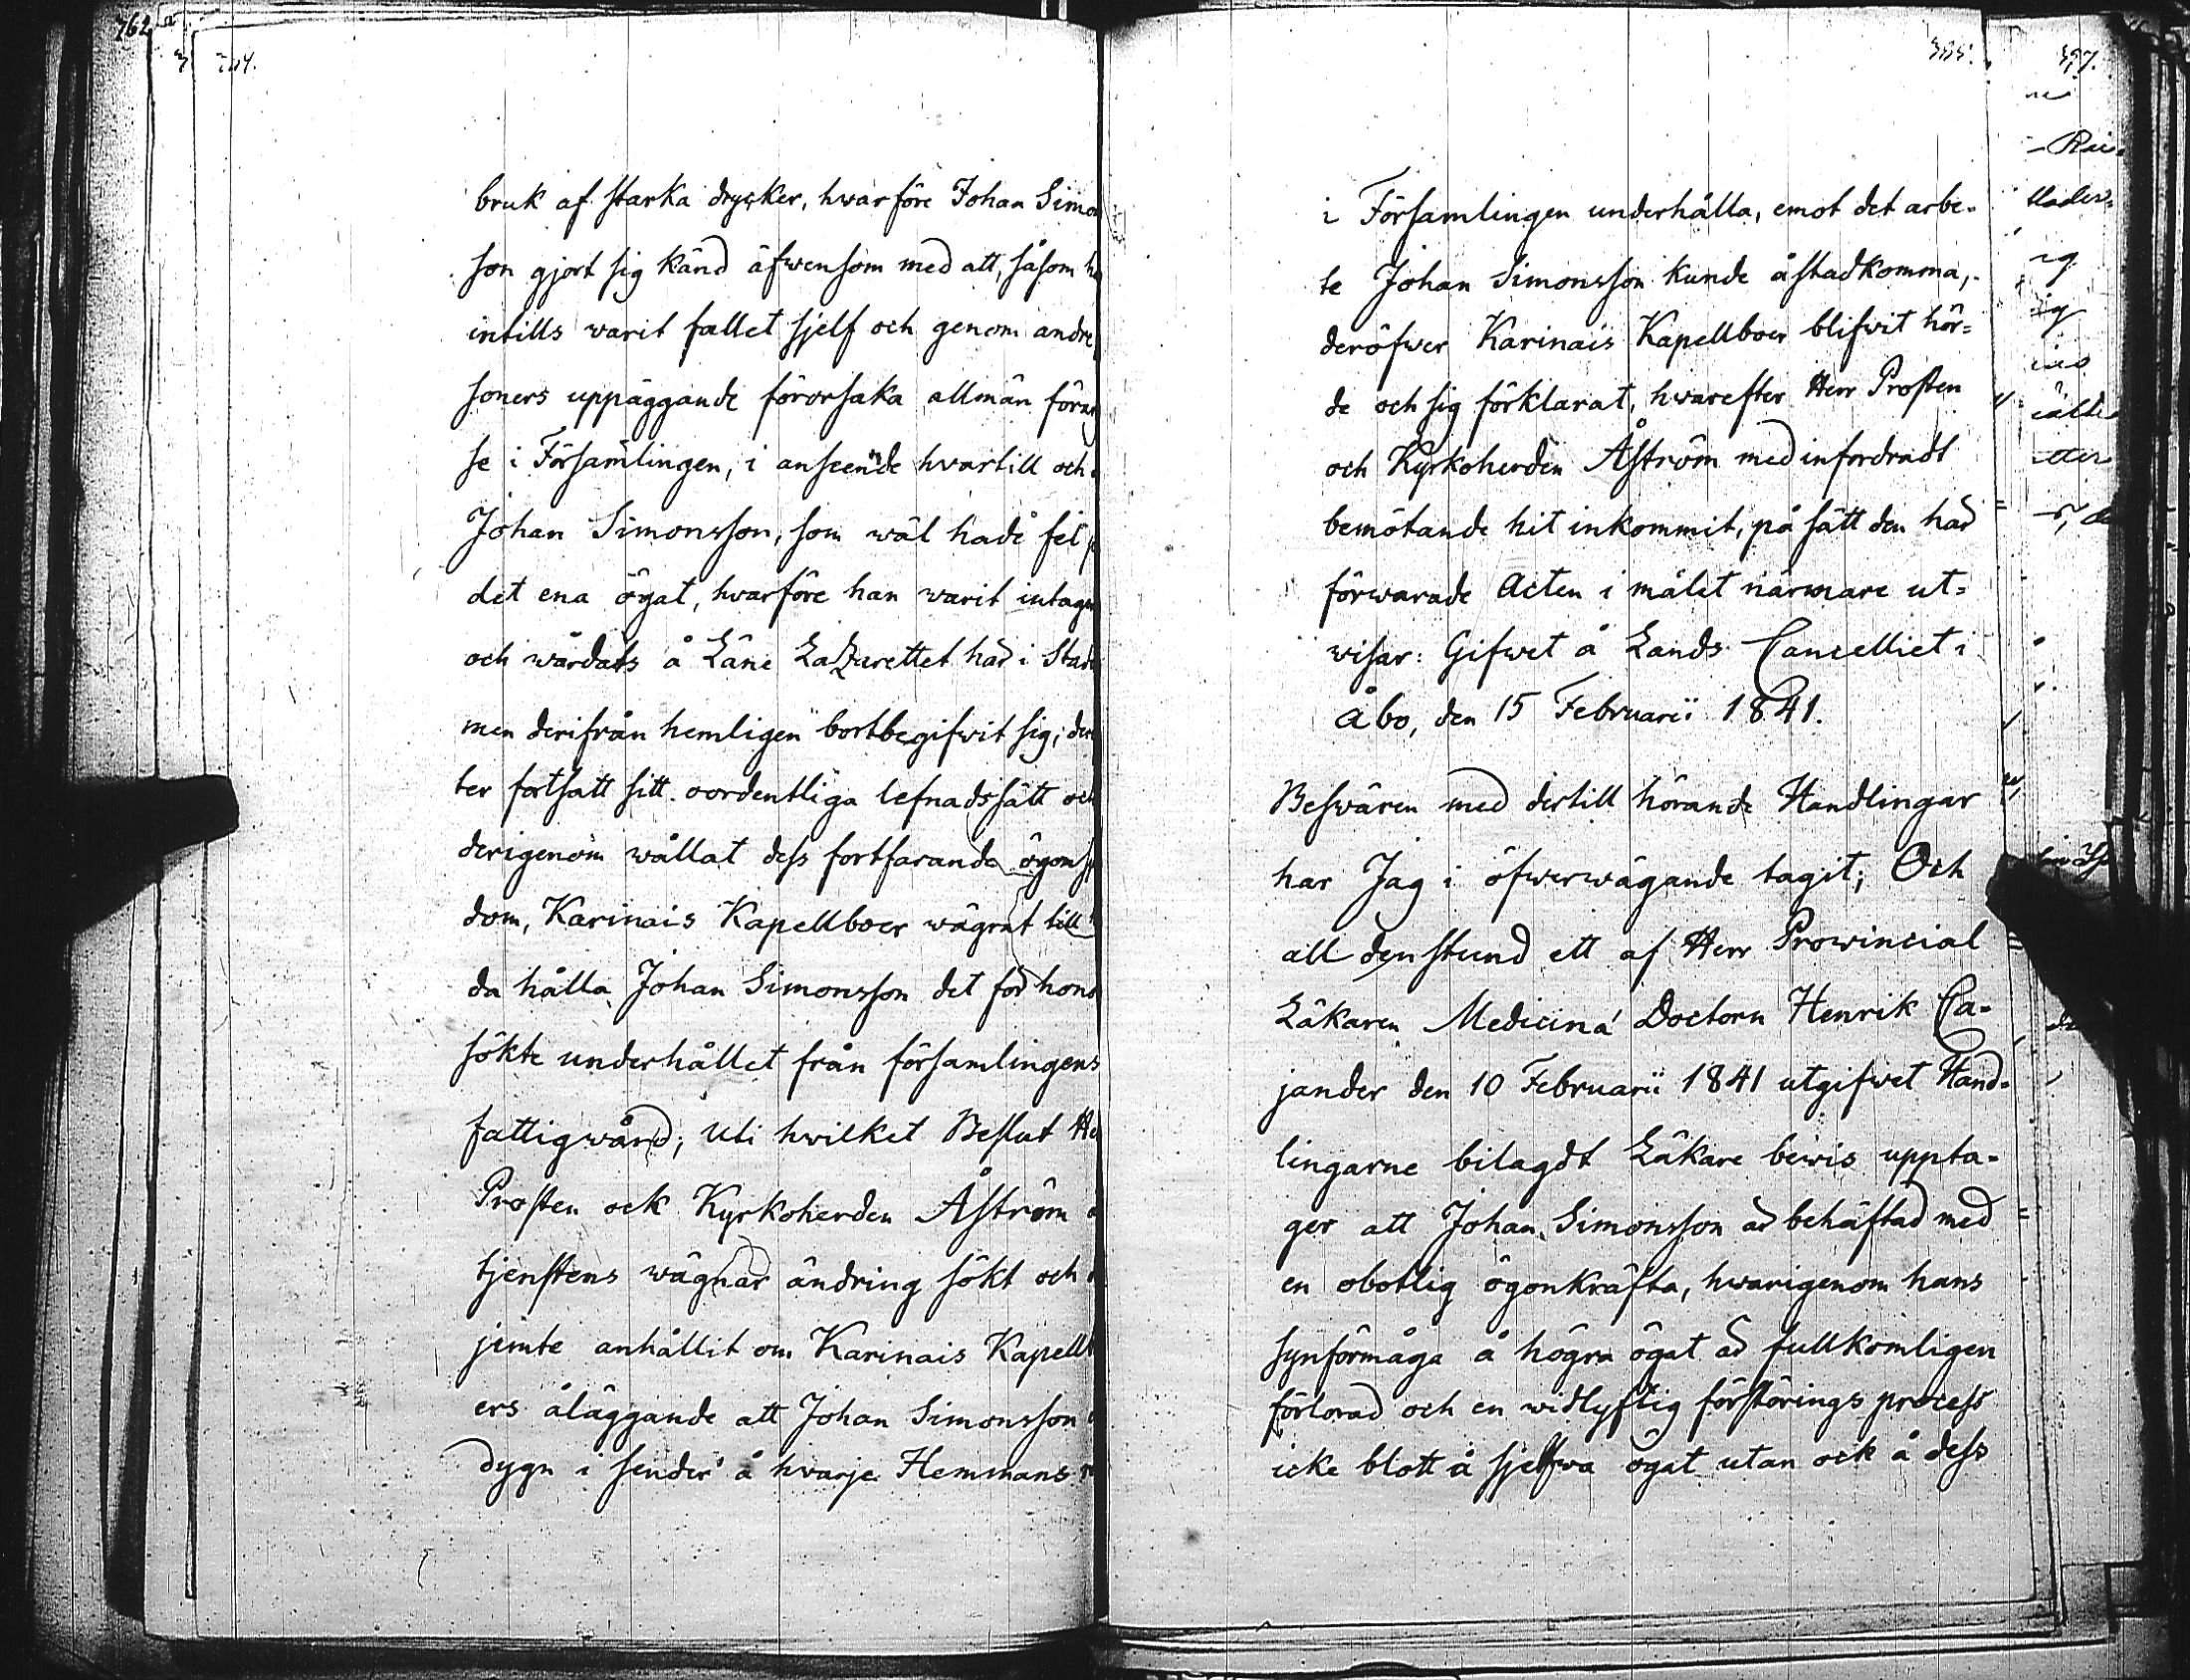 bruk af starka drycker, hwarföre Johan Simo
son gjort sig känd äfwensom med att, såsom
intills warit fallet sjelf och genom andre
soners uppäggande förorsaka allmän förar
se i Församlingen, i anseende hvartill och
Johan Simonsson, som wäl hade fel
det ena ögat, hvarföre han warit intagen
och wårdats å Läne Lazarettet här i Stade
men derifrån hemligen bortbegifwit sig, der
ter fortsatt sitt oordentliga lefnadssätt och
derigenom wållat dess fortfarande ögons
dom, Karinais Kapellboer wägrat till
da hålla Johan Simonsson det för hono
sökte underhållet från församlingens
fattigwård; Uti hwilket Beslut He
Prosten ock Kyrkoherden Åström
tjenstens wägnar ändring sökt och
jemte anhållit om Karinais Kapell
ers åläggande att Johan Simonsson
dygn i sender å hvarje Hemmans
385.
i Församlingen underhålla, emot det arbe-
te Johan Simonsson kunde åstadkomma,
deröfwer Karinais Kapellboer blifwit hör=
de och sig förklarat, hwarefter Herr Prosten
och Kyrkoherden Åström med infordradt
bemötande hit inkommit, på sätt den här
förwarade Acten i målet närmare ut=
wisar: Gifwet å Lands Cancelliet i
Åbo, den 15 Februarii 1841.
Beswären med dertill hörande Handlingar
har Jag i öfwerwägande tagit; Och
all denstund ett af Herr Prowincial
Läkaren Medicinä Doctorn Henrik Ca-
jander den 10 Februarii 1841 utgifwet Hand-
lingarne bilagdt Läkare bewis uppta-
ger att Johan Simonsson är behäftad med
en obotlig ögonkräfta, hwarigenom hans
synförmåga å högra ögat är fullkomligen
förlorad och en widlyftig förstörings process
icke blott å sjelfwa ögat utan ock å dess